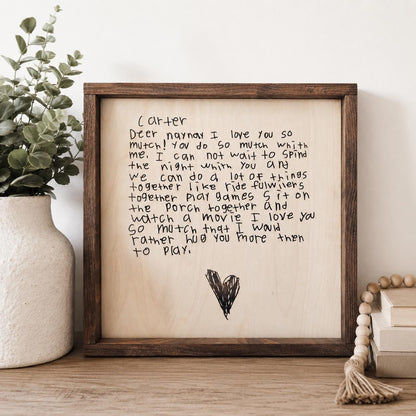 Carter
Deer naynay I love you so
mutch! you do so mutch whith
me. I can not wait to spind
the night whith you and
we can do a lot of things
together like ride fulwilers
together play games sit on
the porch together and
watch a movie I love you
so mutch that I would
rather hug you more then
to play.